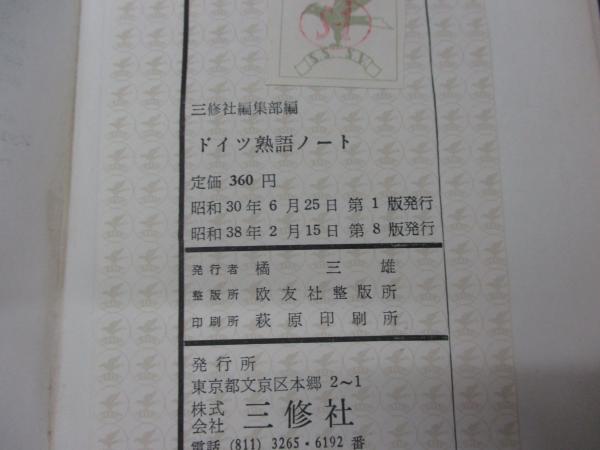 三修社編集部編
ドイツ熟語ノート
定価 360 円
昭和30年 6 月25日 第 1 版発行
昭和38年 2 月15日 第 8 版発行
発行者 橘 三 雄
整版所 欧友社整版所
印刷所 萩原印刷所
発行所
東京都文京区本郷 2～1
株式会社 三修社
電話 (811) 3265・6192 番